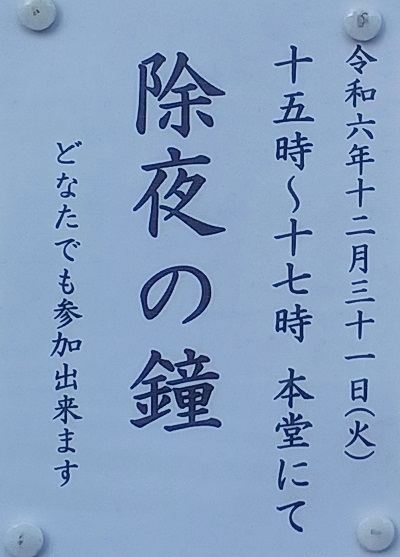 令和六年十二月三十一日(火)
十五時～十七時 本堂にて
除夜の鐘
どなたでも参加出来ます